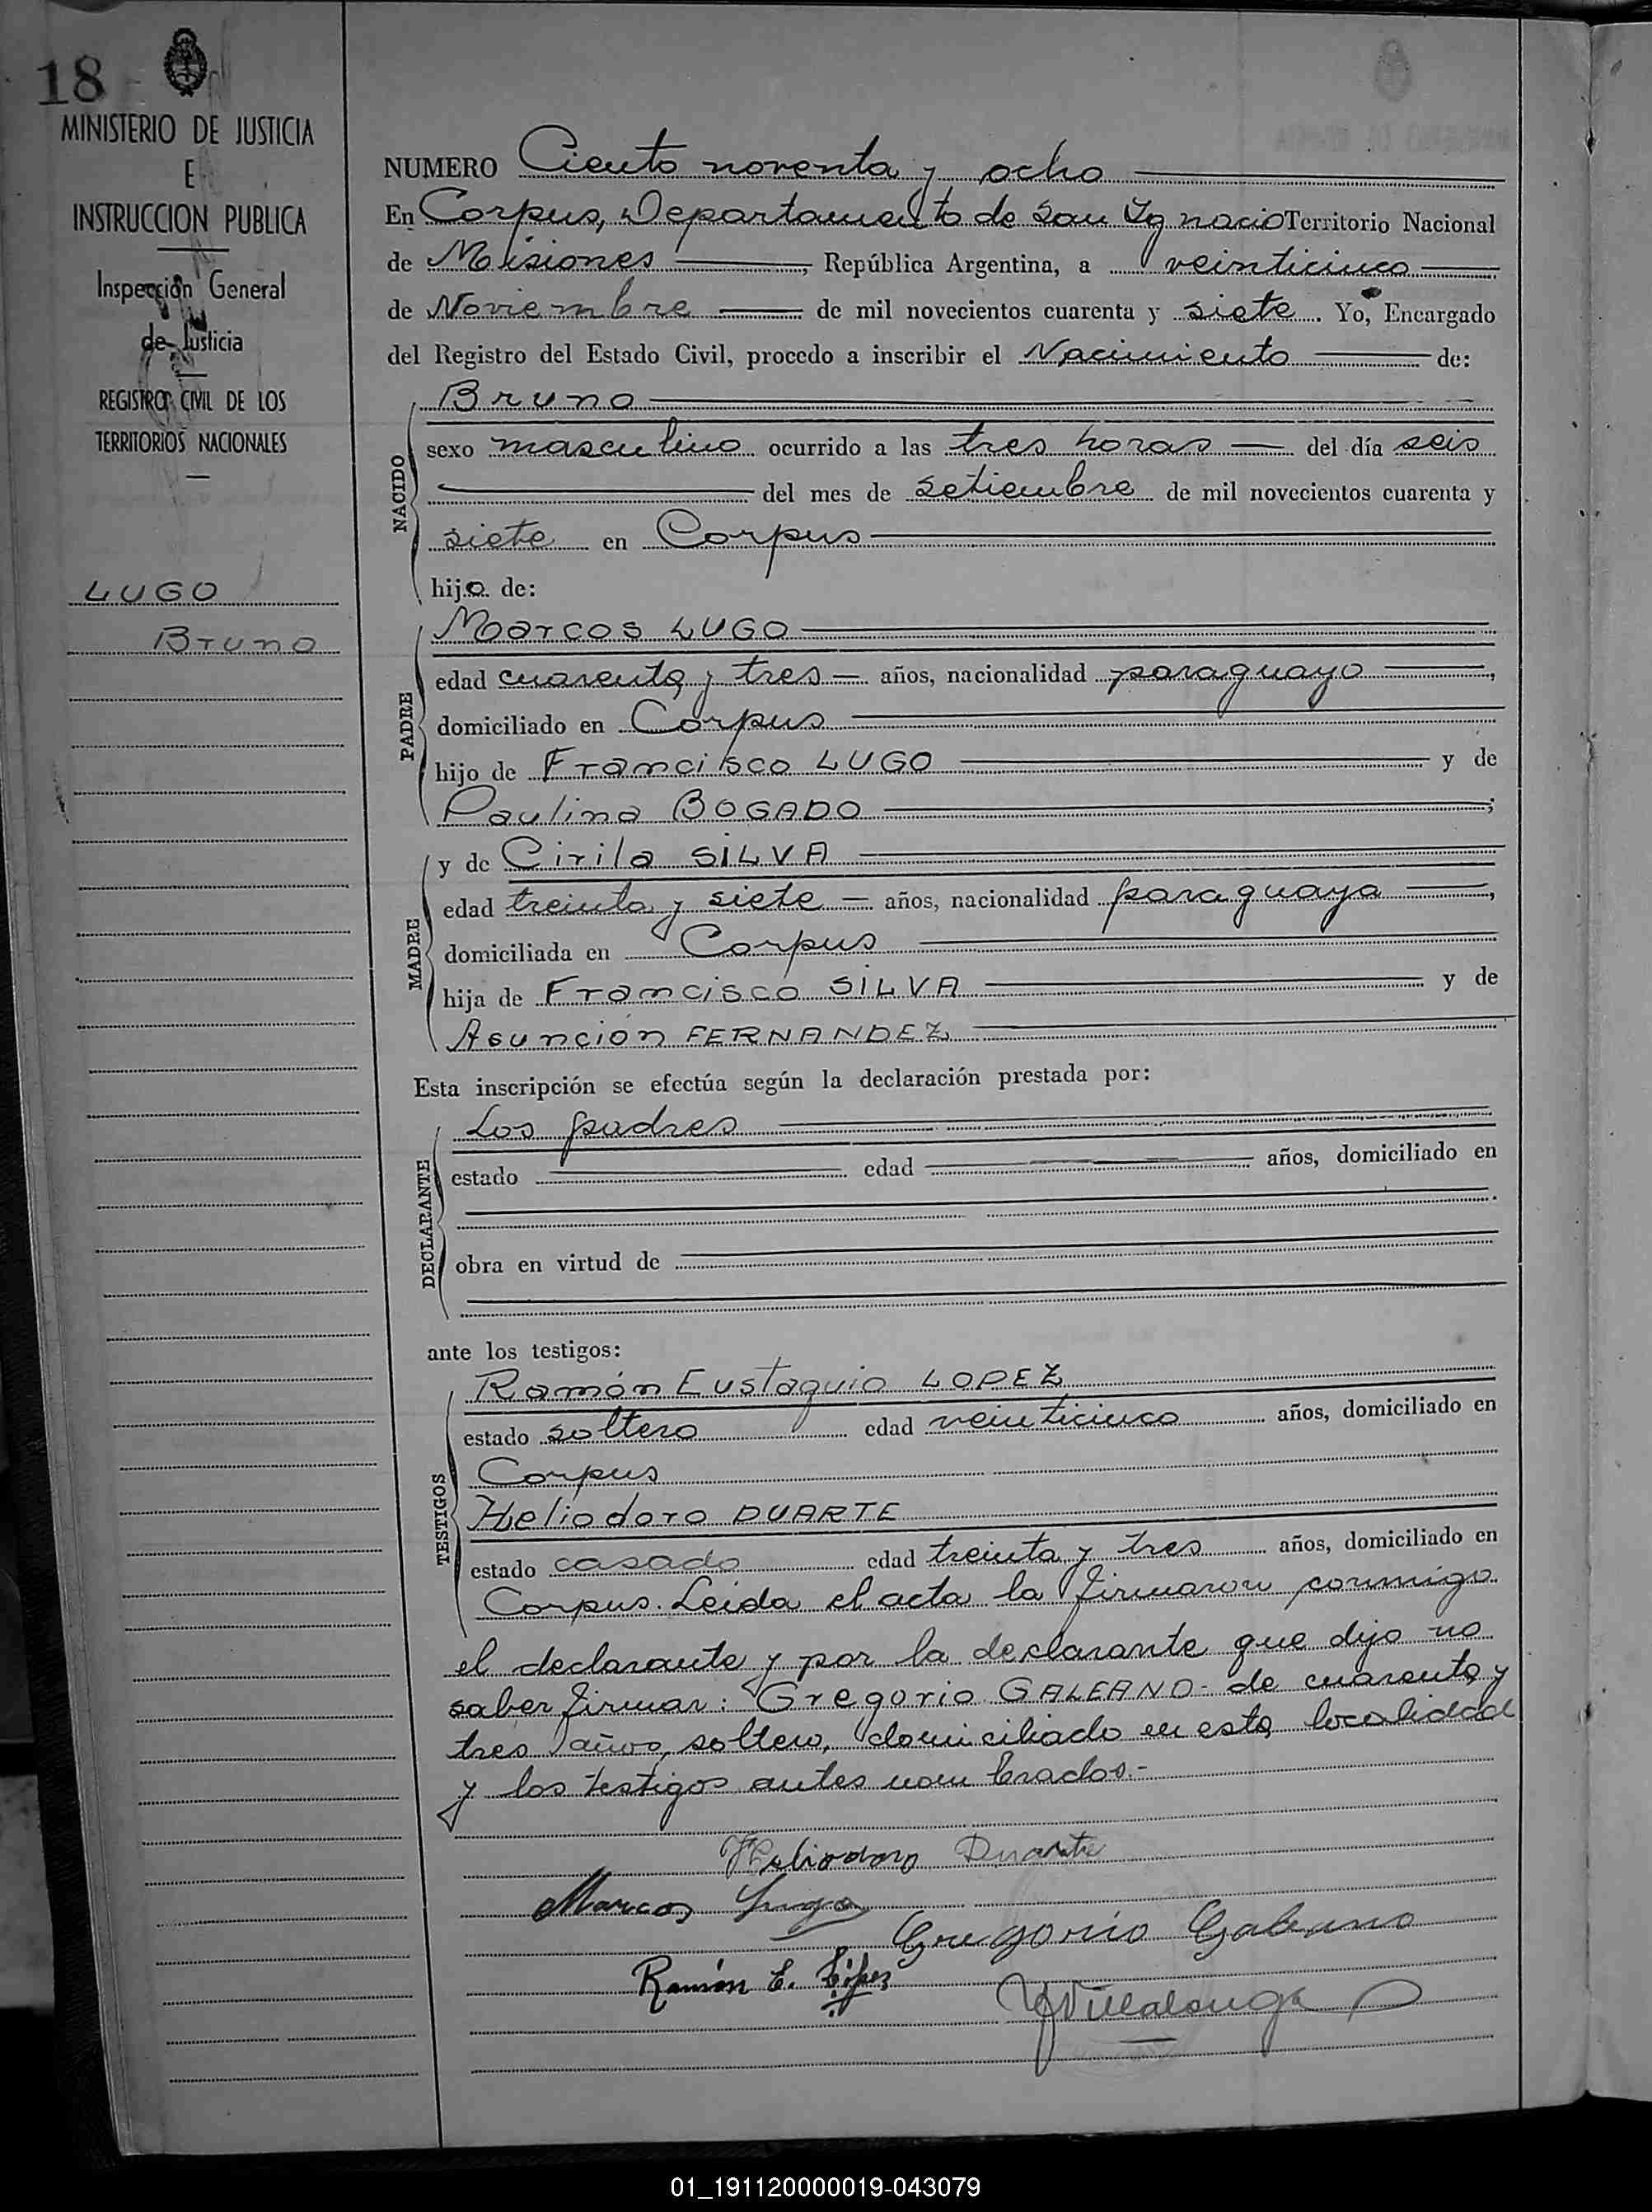 18
MINISTERIO DE JUSTICIA
E
INSTRUCCION PUBLICA
Inspección General
de Justicia
REGISTRO CIVIL DE LOS
TERRITORIOS NACIONALES
LUGO
Bruno
NUMERO Ciento noventa y ocho
En Corpus, Departamento de San Ygnacio Territorio Nacional
de Misiones, República Argentina, a veinticinco
de Noviembre de mil novecientos cuarenta y siete. Yo, Encargado
del Registro del Estado Civil, procedo a inscribir el Nacimiento de:
NACIDO
Bruno
sexo masculino ocurrido a las tres horas del día seis
del mes de Setiembre de mil novecientos cuarenta y
siete en Corpus
hijo de:
PADRE
Marcos LUGO
edad cuarenta y tres años, nacionalidad paraguayo,
domiciliado en Corpus
hijo de Francisco LUGO y de
Paulina BOGADO;
MADRE
y de Cirila SILVA
edad treinta y siete años, nacionalidad paraguaya,
domiciliada en Corpus
hija de Francisco SILVA y de
Asunción FERNANDEZ
Esta inscripción se efectúa según la declaración prestada por:
DECLARANTE
Los padres
estado edad años, domiciliado en
obra en virtud de
ante los testigos:
TESTIGOS
Ramón Eustaquio LOPEZ
estado soltero edad veinticinco años, domiciliado en
Corpus
Heliodoro DUARTE
estado casado edad treinta y tres años, domiciliado en
Corpus. Leida el acta la firmaron conmigo
el declarante y por la declarante que dijo no
saber firmar: Gregorio GALEANO- de cuarenta y
tres años, soltero, domiciliado en esta localidad
y los testigos antes nombrados.-
Heliodoro Duarte
Marcos Lugo
Gregorio Galeano
Ramón E. López
Villalonga
01_191120000019-043079